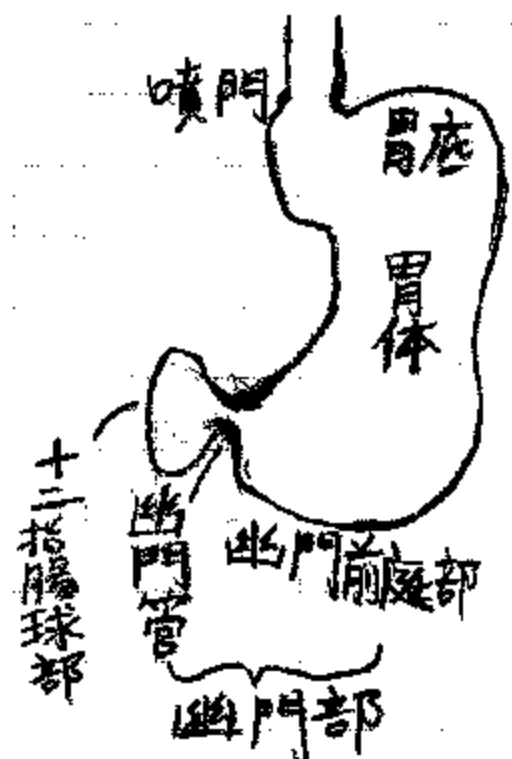 噴門
胃底
胃体
十二指腸球部
幽門管
幽門前庭部
幽門部